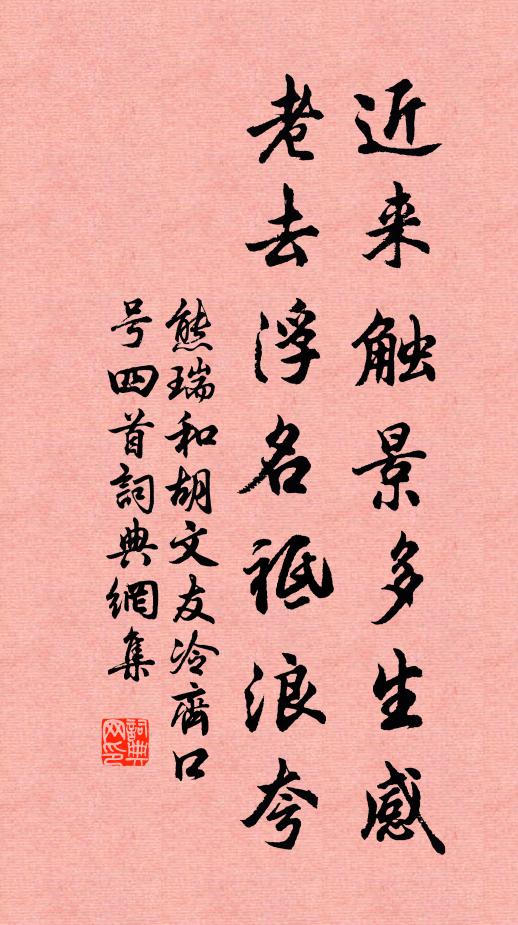 近来触景多生感
老去浮名祗浪夸
熊瑞和胡文友冷齋口
号四首詞典網集
詞典網印